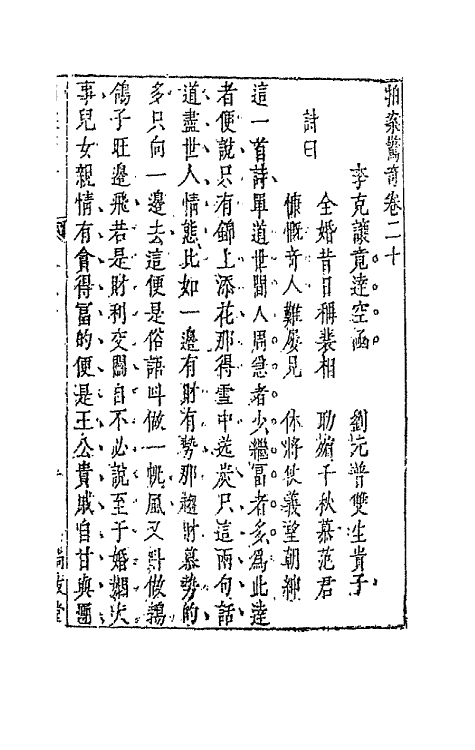 拍案驚奇卷二十
李克讓竟達空函　劉元普雙生貴子
詩曰
全婚昔日稱裴相　助殯千秋慕范君
慷慨奇人難屢見　休將仗義望朝紳
這一首詩單道世間人周急者少繼富者多為此達
者便說只有錦上添花那得雪中送炭只這兩句話
道盡世人情態比如一邊有財有勢那趨財慕勢的
多只向一邊去這便是俗語叫做一帆風又叫做鵓
鴿子旺邊飛若是財利交關自不必說至于婚姻大
事兒女親情有貪得富的便是王公貴戚自甘與團